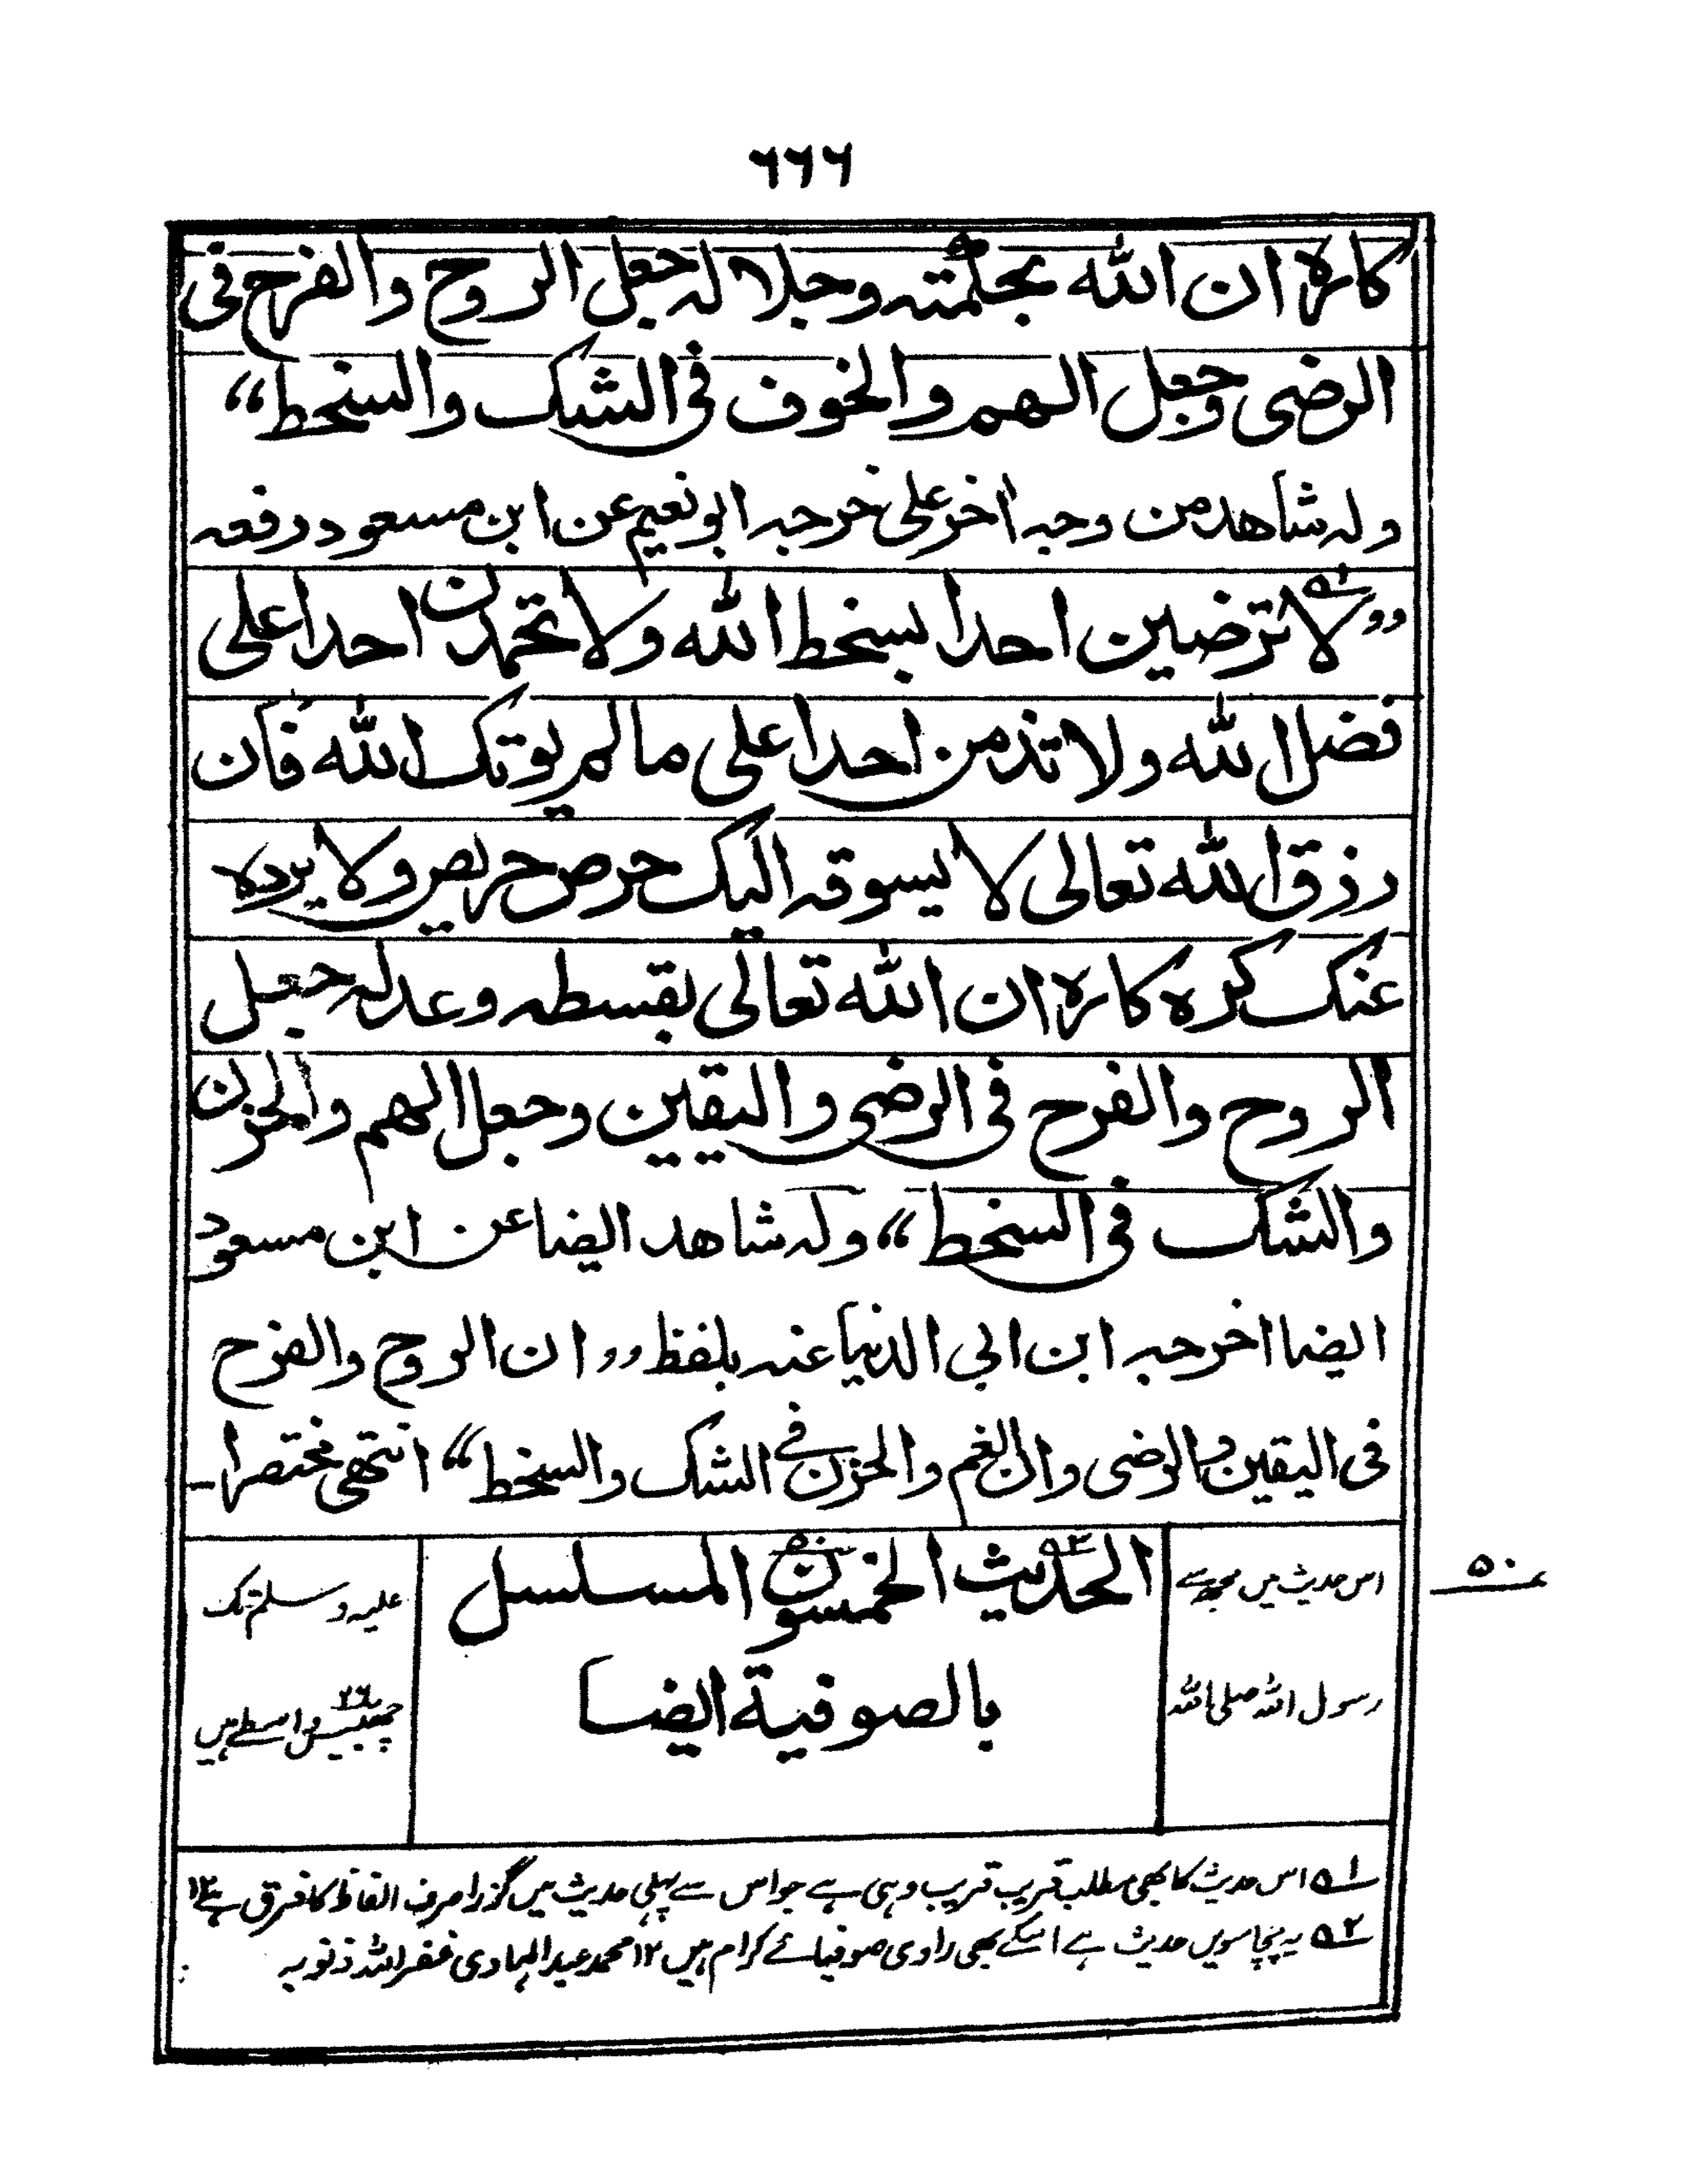 ٦٦٦
كاره ان الله بحكمته وجلاله جعل الروح والفرح فى
الرضى وجعل الهم والخوف فى الشك والسخط“
وله شاهد من وجه اخر على خرجه ابو نعيم عن ابن مسعود رفعه
”لا ترضين احدا بسخط الله ولا تحمدن احدا على
فضل الله ولا تذمن احدا على ما لم يوتك الله فان
رزق الله تعالى لا يسوقه اليك حرص حريص ولا يرده
عنك كره كاره ان الله تعالى بقسطه وعدله جعل
الروح والفرح فى الرضى واليقين وجعل الهم والحزن
والشك فى السخط“ وله شاهد ايضا عن ابن مسعود
ايضا اخرجه ابن ابي الدنيا عنه بلفظ ”ان الروح والفرح
فى اليقين والرضى وان الغم والحزن فے الشك والسخط“ انتهى مختصرا۔
الحديث الخمسون المسلسل
بالصوفية ايضا
۵۰
اس حدیث میں مجھ سے
رسول اللہ صلی اللہ
علیہ وسلم تک
چھبیس واسطے ہیں
۲۶
۱؎ اس حدیث کا بھی مطلب قریب قریب وہی ہے جو اس سے پہلی حدیث میں گزرا صرف الفاظ کا فرق ہے ۱۲
۲؎ یہ پچاسویں حدیث ہے اسکے بھی راوی صوفیائے کرام ہیں ۱۲ محمد عبد الہادی غفر اللہ ذنوبہ